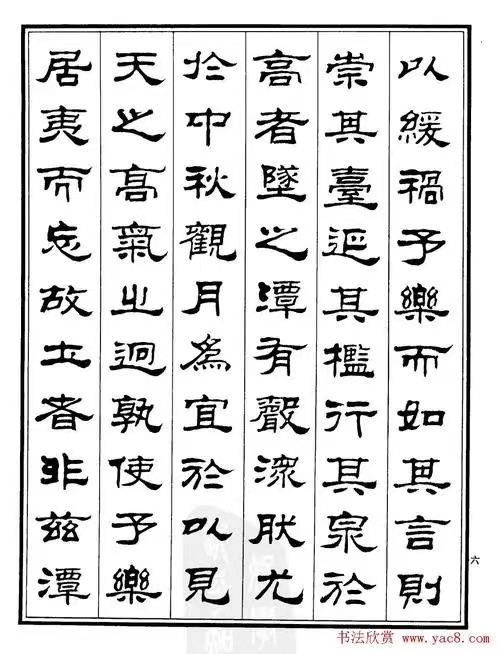 以緩禍予樂而如其言則
崇其臺延其檻行其泉於
高者墜之潭有聲潀然尤
於中秋觀月爲宜於以見
天之高氣之迥孰使予樂
居夷而忘故土者非茲潭
六
书法欣赏 www.yac8.com